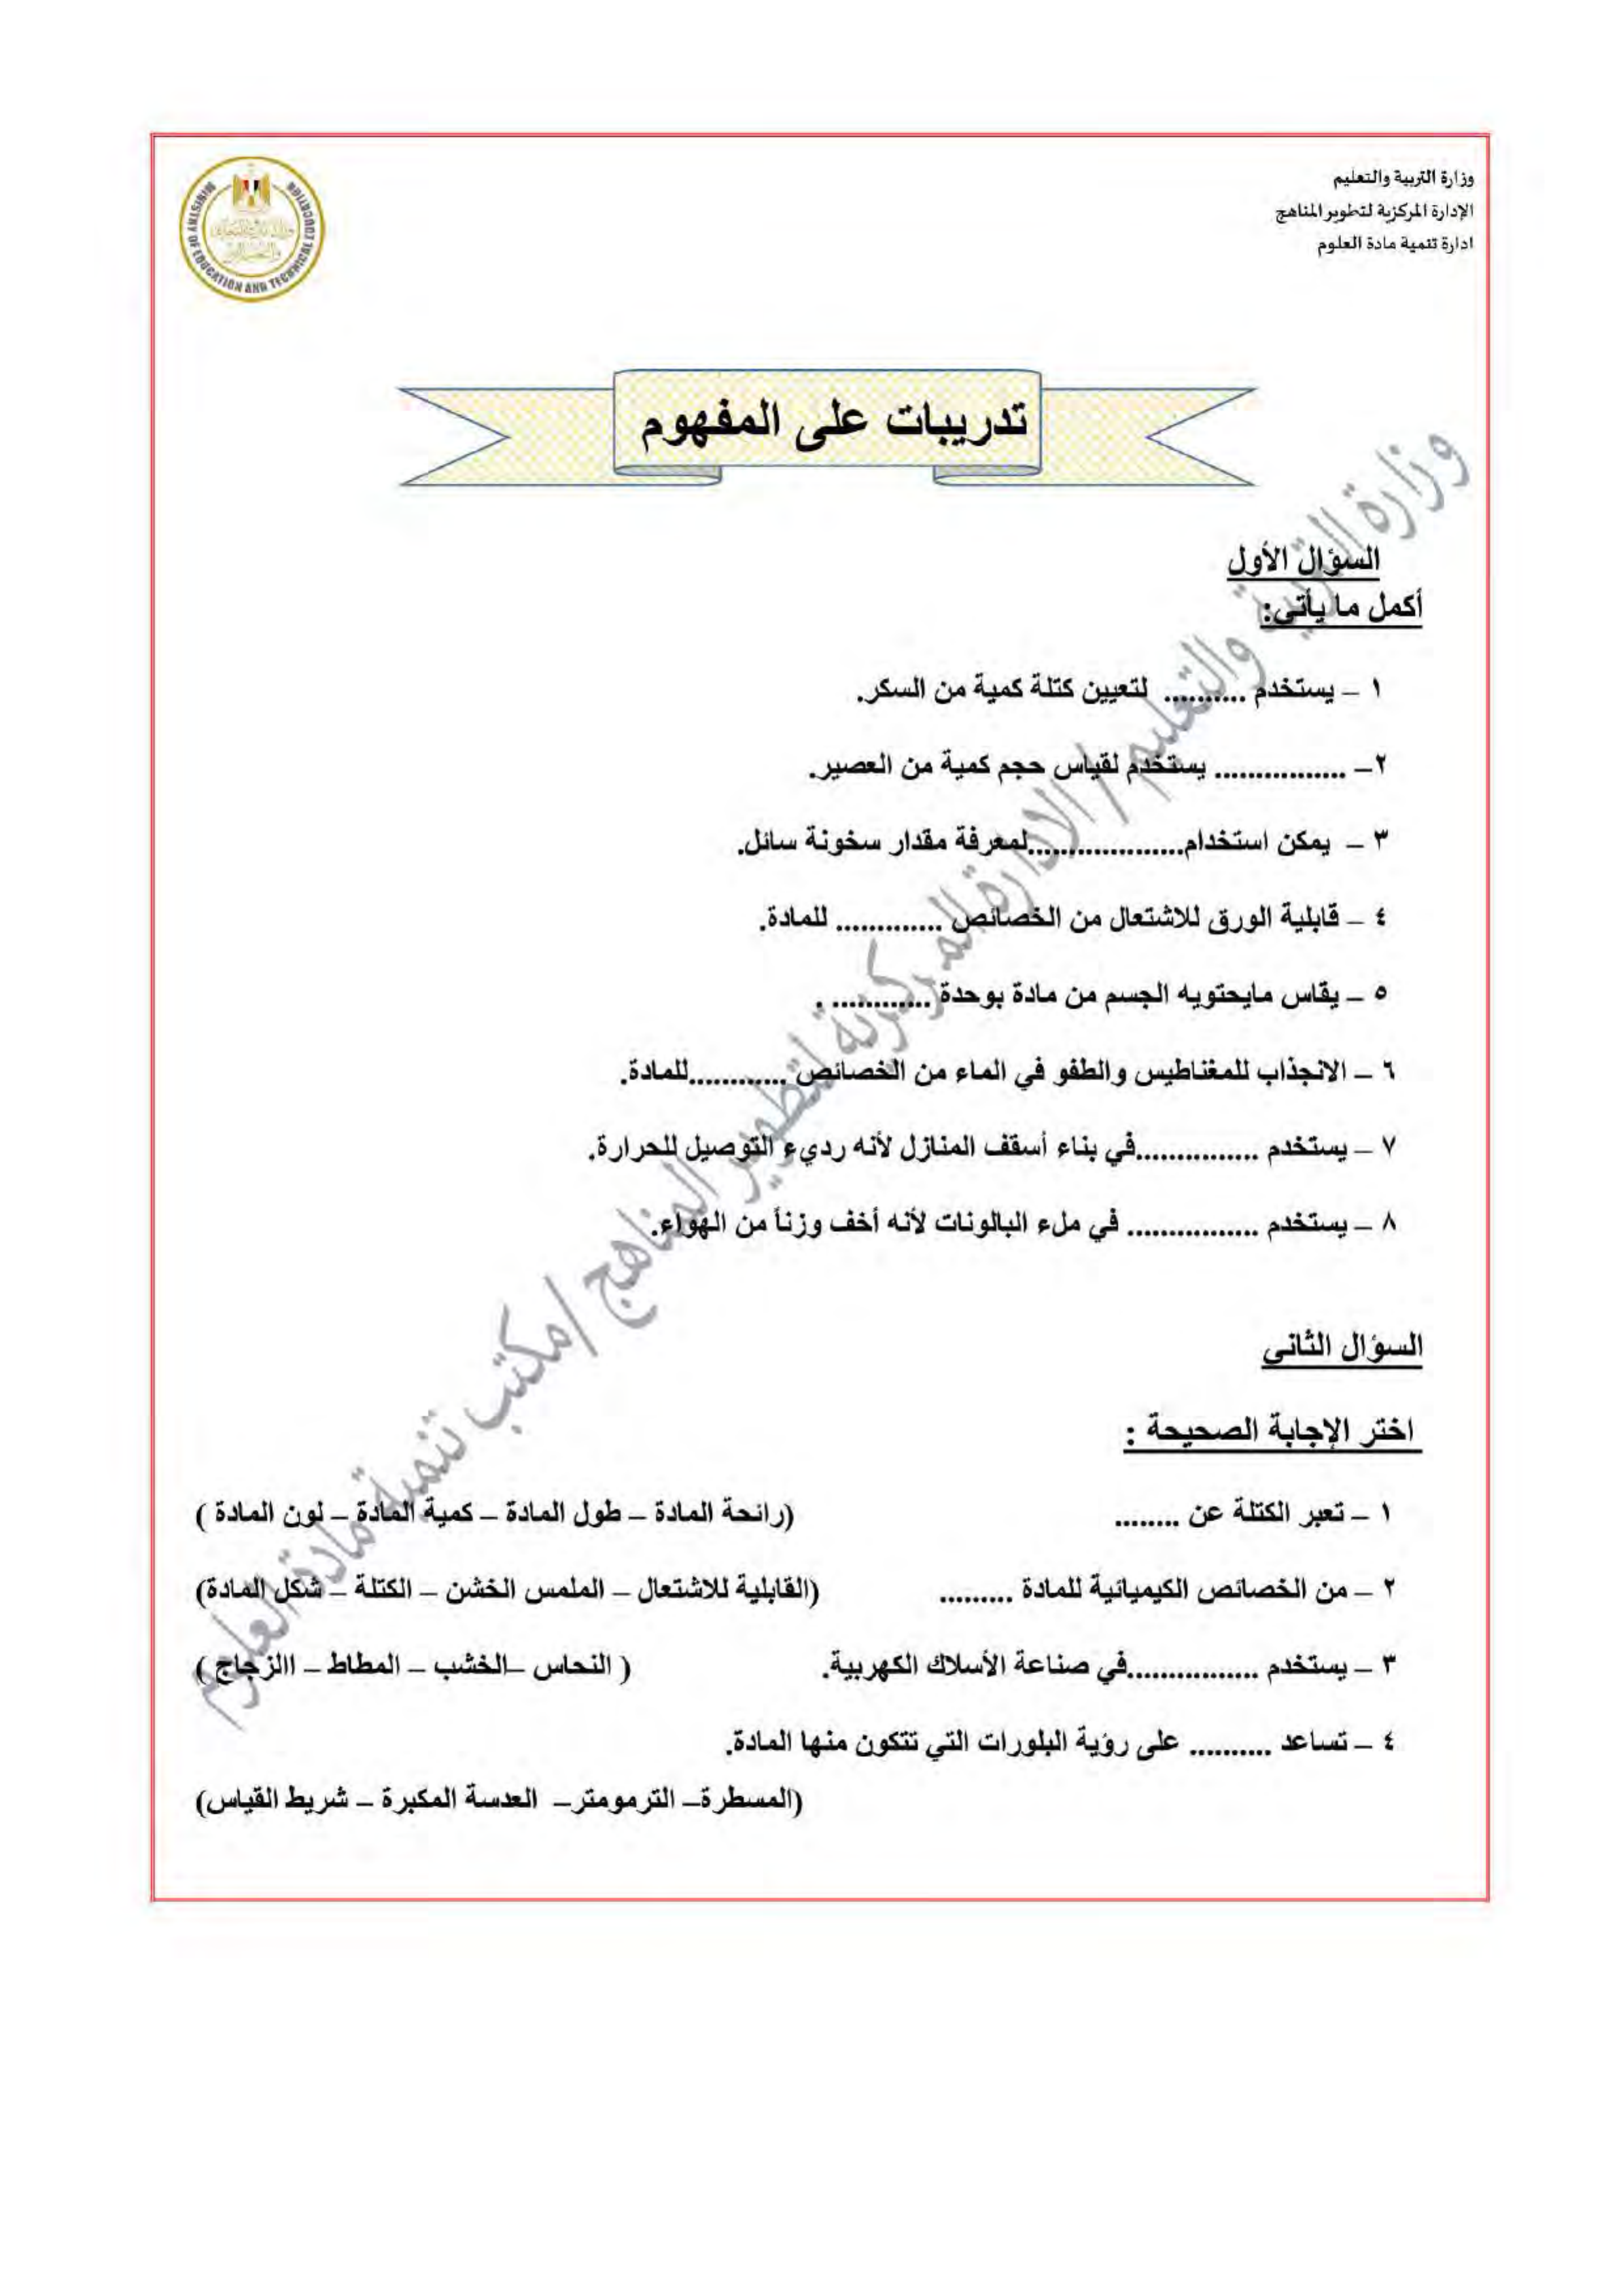 وزارة التربية والتعليم
الإدارة المركزية لتطوير المناهج
ادارة تنمية مادة العلوم
MINISTRY OF EDUCATION AND TECHNICAL EDUCATION
تدريبات على المفهوم
السؤال الأول
أكمل ما يأتى:
١ – يستخدم .......... لتعيين كتلة كمية من السكر.
٢– ................ يستخدم لقياس حجم كمية من العصير.
٣ – يمكن استخدام...................لمعرفة مقدار سخونة سائل.
٤ – قابلية الورق للاشتعال من الخصائص ............. للمادة.
٥ – يقاس مايحتويه الجسم من مادة بوحدة ............ .
٦ – الانجذاب للمغناطيس والطفو في الماء من الخصائص ............للمادة.
٧ – يستخدم ...............في بناء أسقف المنازل لأنه رديء التوصيل للحرارة.
٨ – يستخدم ................ في ملء البالونات لأنه أخف وزناً من الهواء.
السؤال الثانى
اختر الإجابة الصحيحة :
١ – تعبر الكتلة عن ........ (رائحة المادة – طول المادة – كمية المادة – لون المادة )
٢ – من الخصائص الكيميائية للمادة ......... (القابلية للاشتعال – الملمس الخشن – الكتلة – شكل المادة)
٣ – يستخدم ................في صناعة الأسلاك الكهربية. ( النحاس –الخشب – المطاط – االزجاج )
٤ – تساعد .......... على رؤية البلورات التي تتكون منها المادة.
(المسطرة– الترمومتر– العدسة المكبرة – شريط القياس)
وزارة التربية والتعليم / الادارة المركزية لتطوير المناهج / مكتب تنمية مادة العلوم